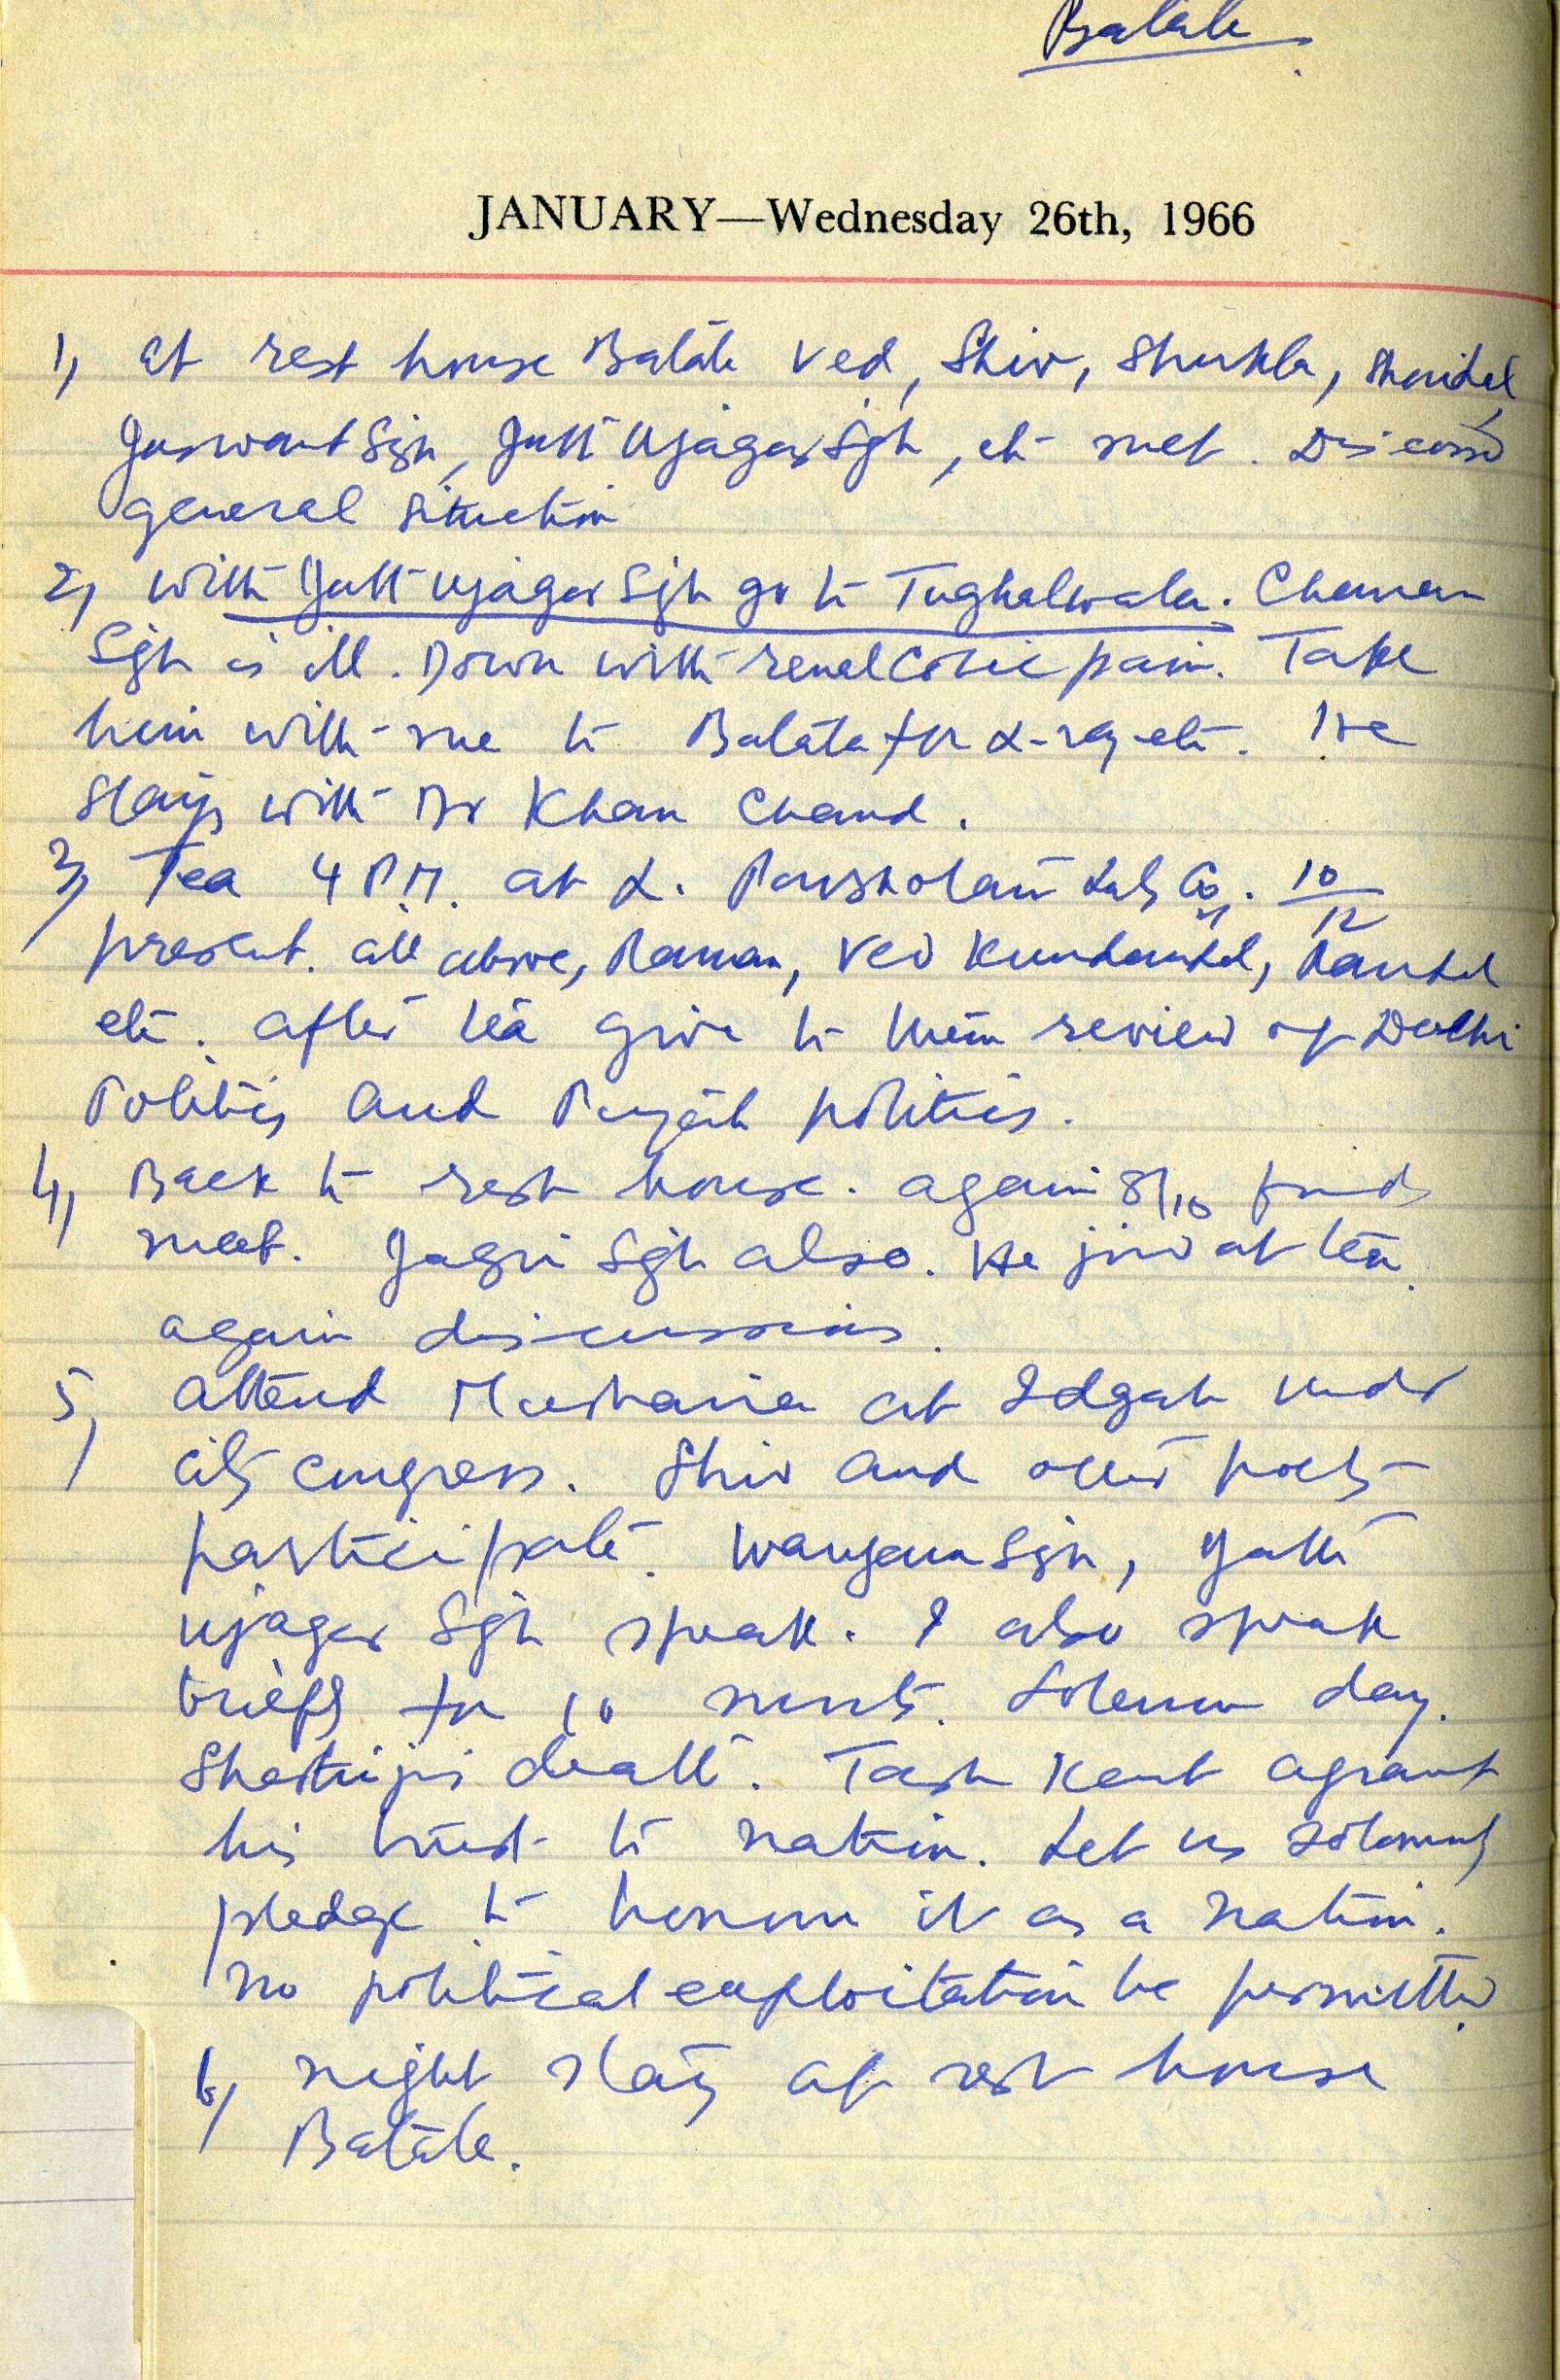 Batala
JANUARY—Wednesday 26th, 1966
1) At rest house Batala Ved, Shiv, Shukla,
Jaswant Sgh, Ujagar Sgh, etc met. Discussed
general situation
2) With Ujagar Sgh go to Tughalwala. Chanan
Sgh is ill. Down with renal colic pain. Take
him with me to Batala for X-ray etc. He
stays with Dr Khan Chand.
3) Tea 4 P.M. at L. 10/12
present. All above, Raman, Ved Kundanlal,
etc. After tea give to them review of Delhi
Politics and Punjab politics.
4) Back to rest house. Again 8/10 friends
meet. Sgh also. He joind at tea.
again discussions.
5) Attend Mushaira at Idgah under
city congress. Shiv and other poets
participate. Sgh,
Ujagar Sgh speak. I also speak
briefly for 10 minuts. Solemn day.
Shastriji's death. Tashkent agramt
his trust to nation. Let us solemnly
pledge to honour it as a nation.
No political exploitation be permitted.
6) Night stay at rest house
Batala.